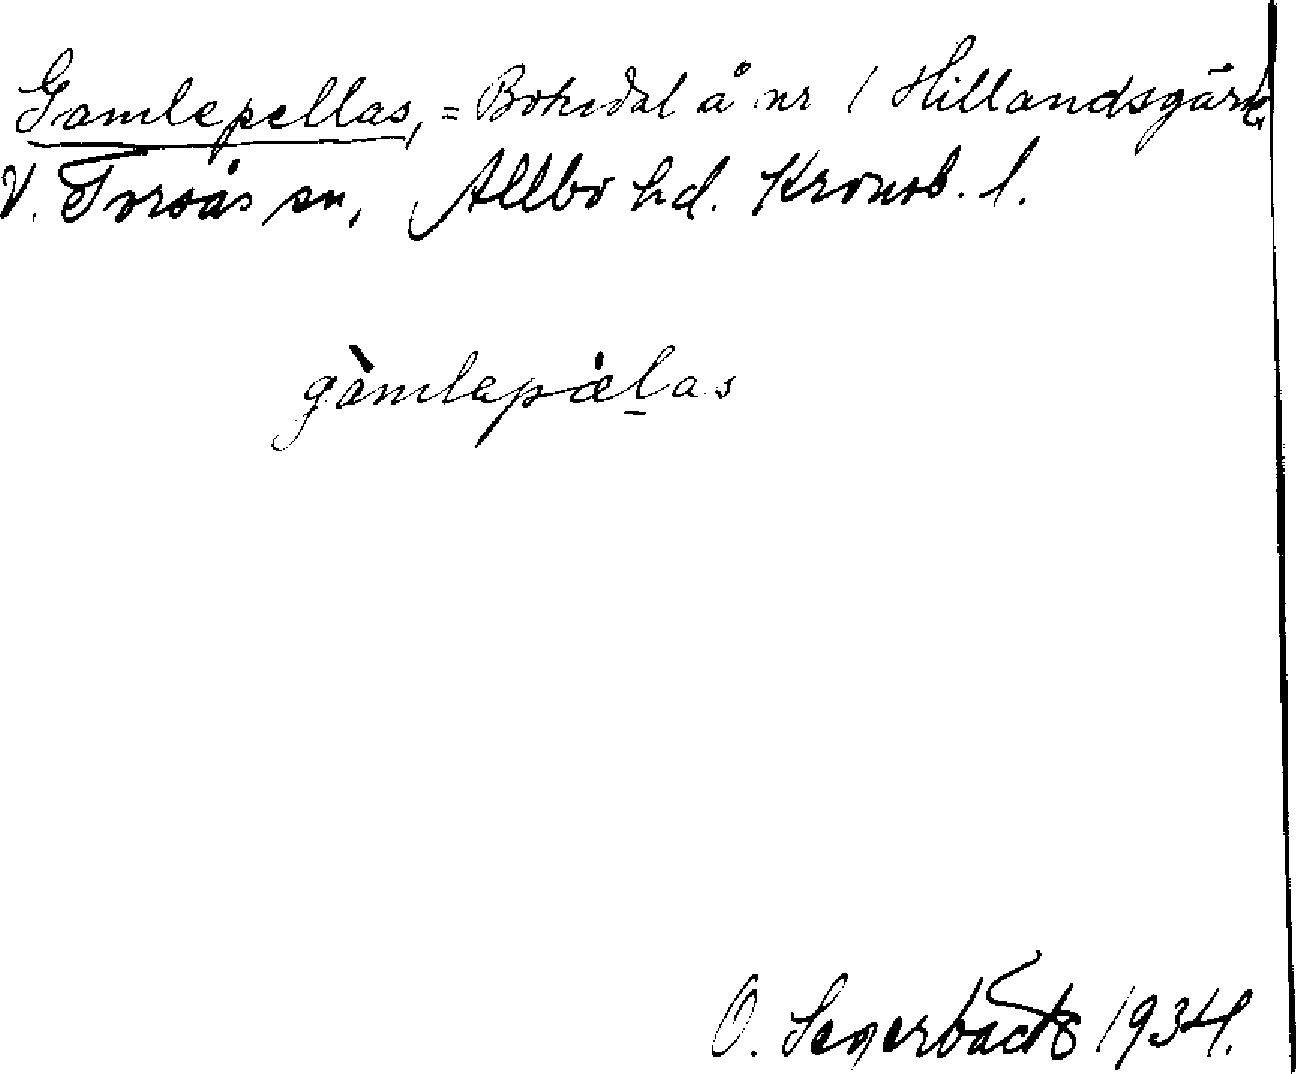 Gamlepellas, = Bokedal å nr 1 Hillandsgärde,
V. Torsås sn, Allbo hd. Kronob. l.
gàmlepǽlas
O. Segerbäck 1934.